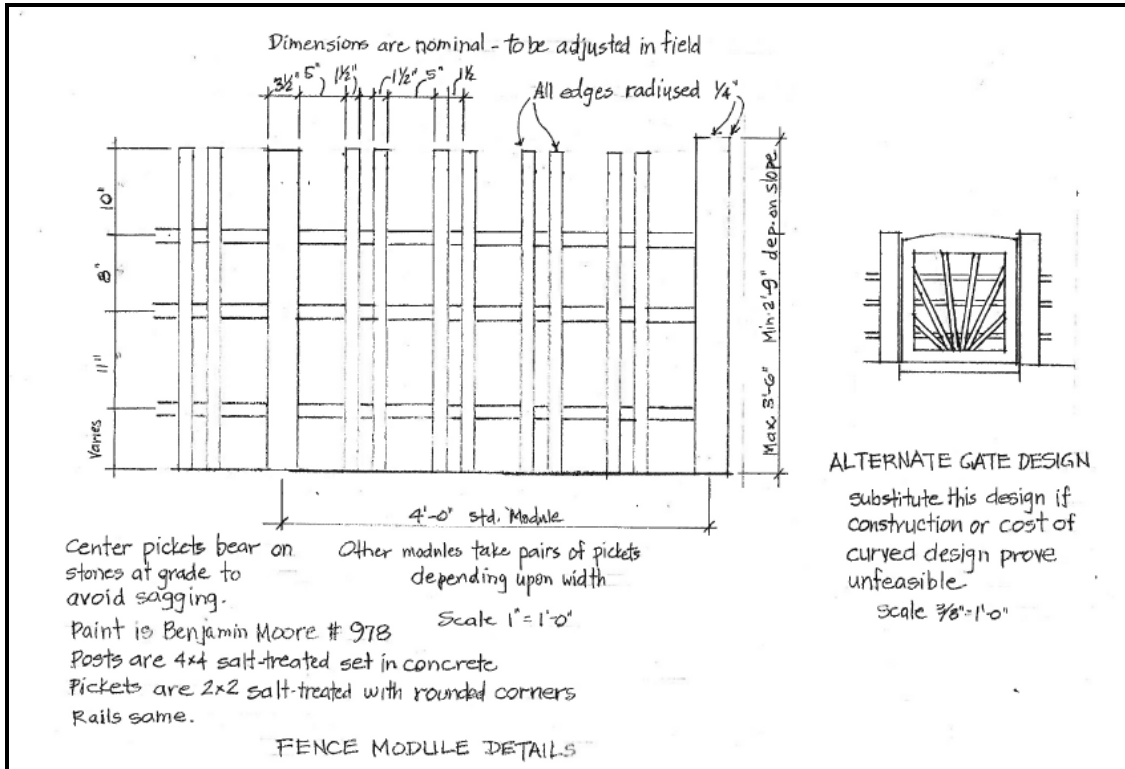 Dimensions are nominal - to be adjusted in field
3½" 5" 1½" 1½" 5" 1½
All edges radiused ¼"
10"
8"
11"
Varies
Max. 3'-6" Min. 2'-9" dep. on slope
4'-0" std. Module
Center pickets bear on
stones at grade to
avoid sagging.
Other modules take pairs of pickets
depending upon width
Scale 1" = 1'-0"
Paint is Benjamin Moore # 978
Posts are 4x4 salt-treated set in concrete
Pickets are 2x2 salt-treated with rounded corners
Rails same.
FENCE MODULE DETAILS
ALTERNATE GATE DESIGN
substitute this design if
construction or cost of
curved design prove
unfeasible
Scale 3/8"=1'-0"